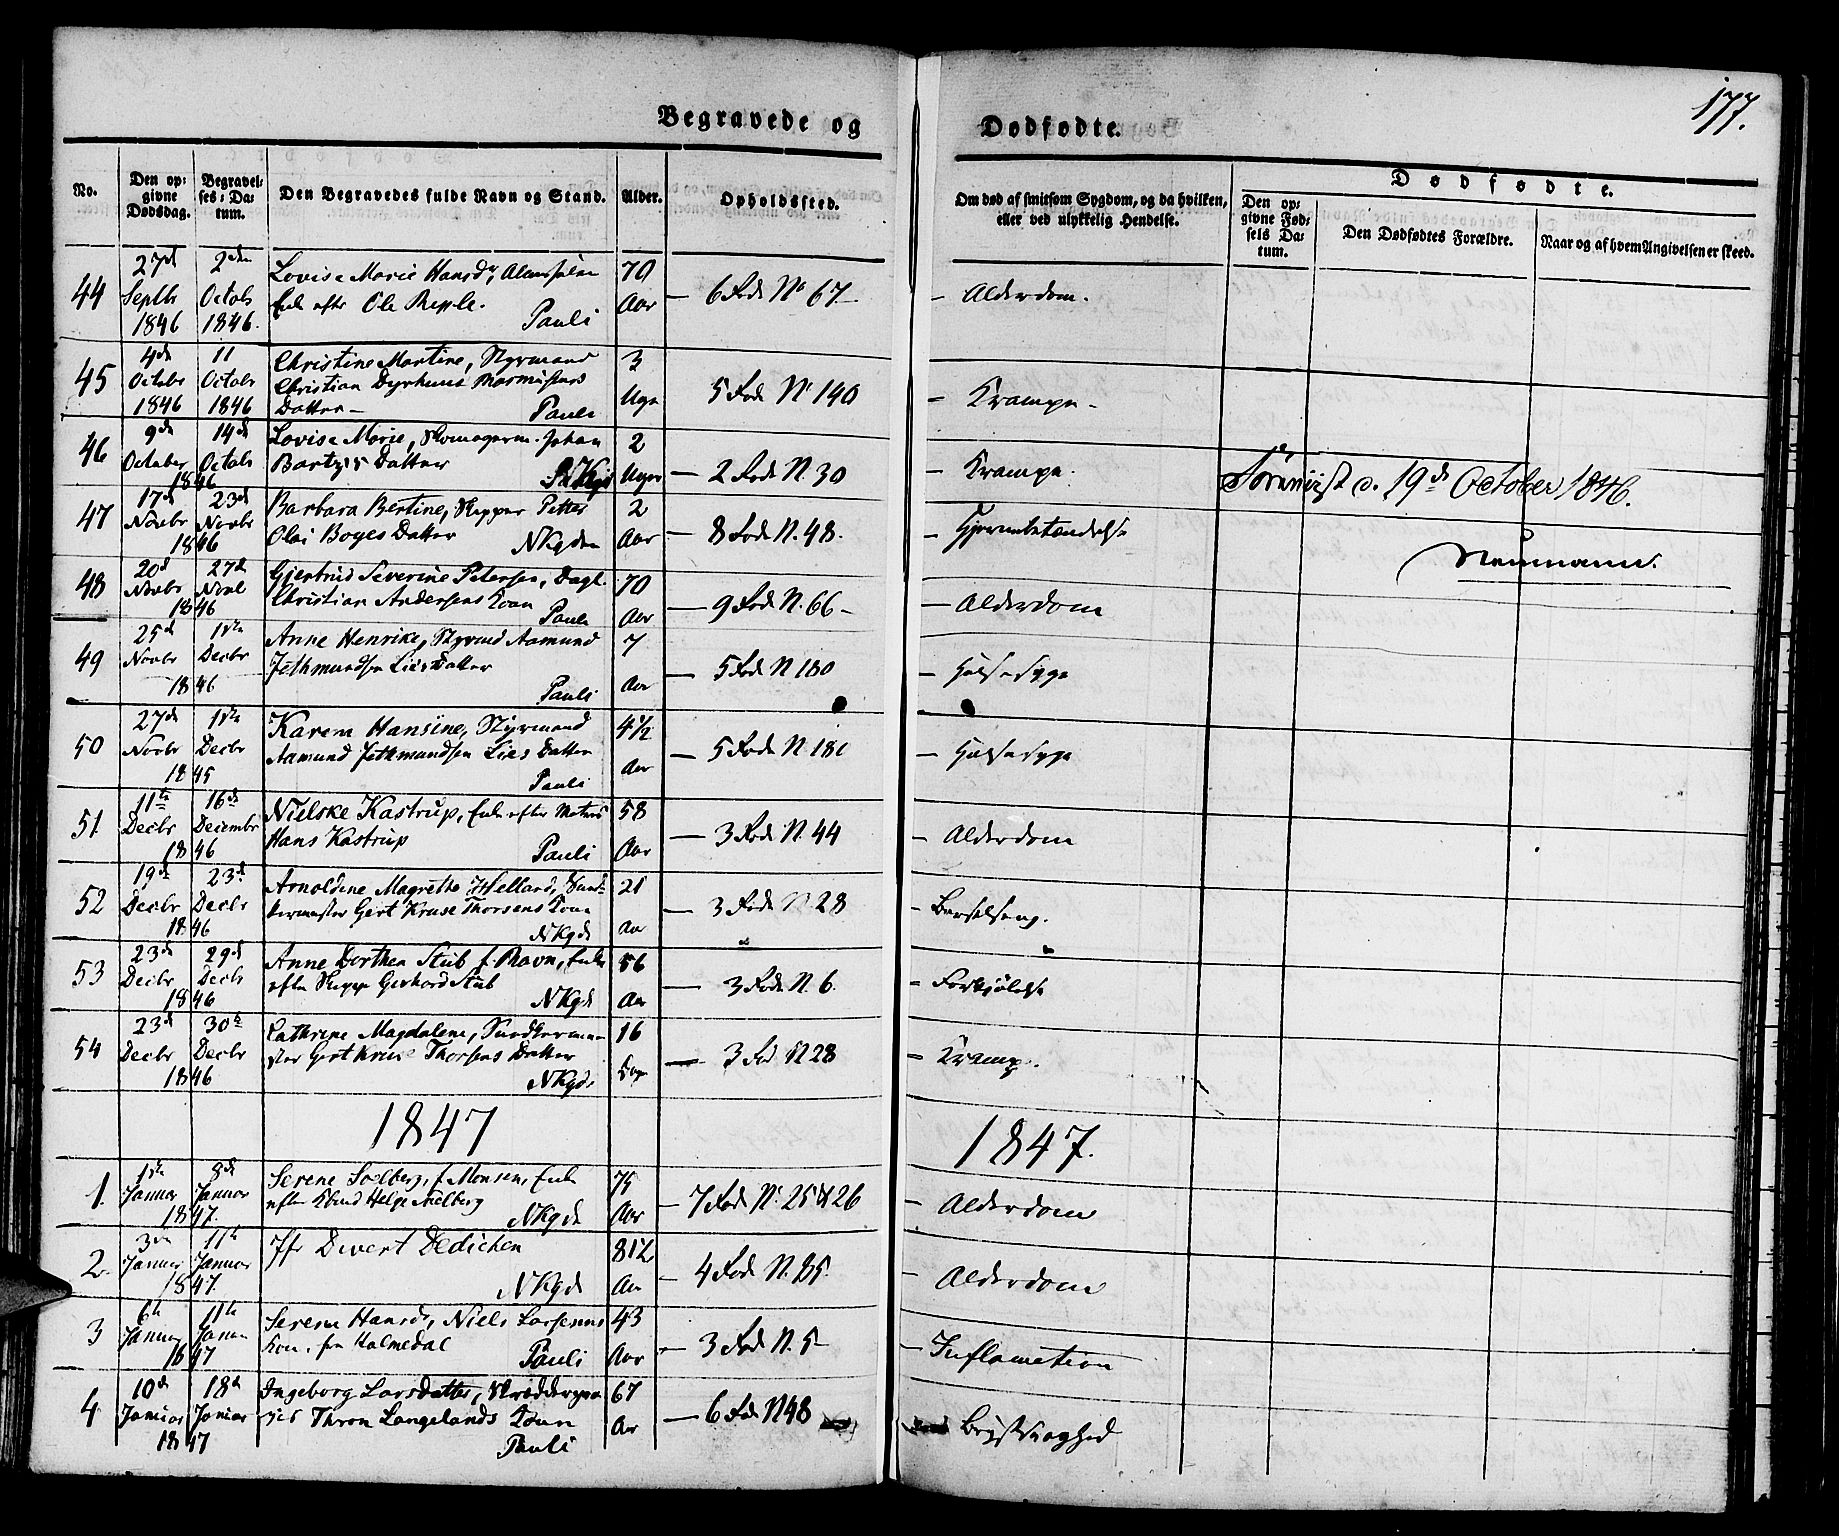 177.
Begravede og Dødfødte.
No. | Den opgivne Dødsdag. | Begravelses-Datum. | Den Begravedes fulde Navn og Stand. | Alder. | Opholdssted. | Om død af smitsom Sygdom, og da hvilken, eller ved ulykkelig Hendelse. | Dødfødte.
Den opgivne Fødsels Datum. | Den Dødfødtes Forældre. | Naar og af hvem Angivelsen er skeed.
44 27de Septb 1846 2den Octob 1846. Lovise Marie Hansdr,
Enke efter Ole Repple. Pauli 70 Aar — 6 Rode No 67 — Alderdom.
45 4de Octobr 1846 11 Octob 1846 Christine Martine, Styrmand
Christian Dyrhuus
Datter — Pauli 3 Uger 5 Rode N. 190 — Krampe —
46 9de October 14de Octob 1846 Lovise Marie, Skomagerm. Johan
Datter NKgd 2 Uger — 2 Rode N. 30 — Krampe.
Seet ved Visitats d. 19de October 1846.
Neumann.
47 17de Novbr 23de Novbr 1846 Barbara Bertine, Skipper Petter
Olai Boyes Datter NKgden 2 Aar — 8 Rode N. 48. — Hjernebetændelse
48 20de Novbr 27de Novb 1846 Gjertrud Severine Petersen, Dagl.
Christian Andersens Kone Pauli 70 Aar — 9 Rode N. 66 — — Alderdom
49 25de Novbr 1ste Decbr 1846 Anne Henrike, Styrmd Aamund
Jethmundsen Lies Datter Pauli 7 Aar — 5 Rode N 180 — Halsesyge
50 27de Novbr 1ste Decbr 1845 Karen Hansine, Styrmand
Aamund Jethmundsen Lies Datter
Pauli 4½ Aar — 5 Rode N. 181 — Halsesyge
51 11te Decbr 16de Decembr 1846 Nielske Kastrup, Enke efter Matros
Hans Kastrup Pauli 58 Aar — 3 Rode N. 44 — Alderdom
52 19de Decbr 23de Decbr 1846 Arnoldine Magrethe Helland,
Gert Kruse Thorsens Kone
NKgd 21 Aar — 3 Rode N 28 — Barselseng.
53 23de Decbr 29de Decbr 1846 Anne Dorthea Stub f. Ravn, Enke
efter Skipp Gerhard Stub NKgd 56 Aar — 3 Rode N. 6. — Forkjølelse
54 23de Decbr 30te Decbr 1846 Cathrine Magdalene,
Gert Kruse Thorsens Datter
NKgd. 16 Dage — 3 Rod N 28 — Krampe.
1847 1847.
1. 1ste Januar 8de Januar 1847. Serene Solberg, f. Monsen, Enke
efter Helge Solberg
NKgd 75 Aar — 7 Rode No. 25 & 26 — Alderdom
2. 3die Januar 11te Januar 1847. Jfr Divert Dedichen
NKgd 81½ Aar — 4 Rode N. 85. — Alderdom
3 6te Januar 11te Januar 1847 Serene Hansdr, Niels Larsens
Kone, fra Holmedal Pauli 43 Aar — 3 Rode N. 5 — — Inflamation
4 10de Januar 18de Januar 1847 Ingeborg Larsdatter,
Thron Langelands Kone
Pauli 67 Aar — 6 Rode N 48 Brystsvaghed